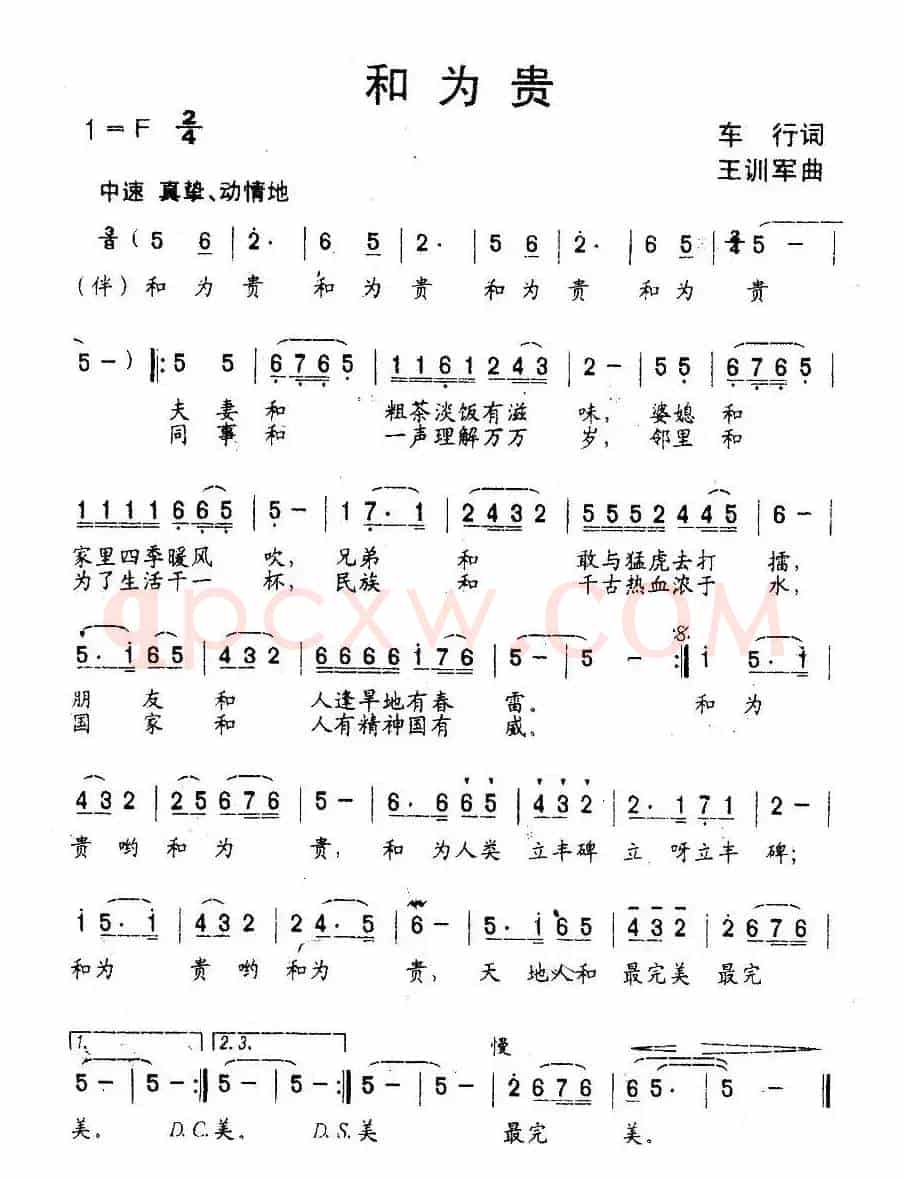 和为贵
1=F 2/4
车 行词
王训军曲
中速 真挚、动情地
( 5 6 | 2· | 6 5 | 2· | 5 6 | 2· | 6 5 | 2/4 5 - |
(伴)和 为 贵 和 为 贵 和 为 贵 和 为 贵
5 - ) ‖: 5 5 | 6 7 6 5 | 1 1 6 1 2 4 3 | 2 - | 5 5 | 6 7 6 5 |
夫 妻 和 粗茶淡饭有滋 味, 婆媳 和
同 事 和 一声理解万万 岁, 邻里 和
1 1 1 1 6 6 5 | 5 - | 1 7· 1 | 2 4 3 2 | 5 5 5 2 4 4 5 | 6 - |
家里四季暖风 吹, 兄弟 和 敢与猛虎去打 擂,
为了生活干一 杯, 民族 和 千古热血浓于 水,
qpcxw.COM
5· i 6 5 | 4 3 2 | 6 6 6 6 i 7 6 | 5 - | 5 - :‖ i 5· i |
朋 友 和 人逢旱地有春 雷。 和为
国 家 和 人有精神国有 威。
4 3 2 | 2 5 6 7 6 | 5 - | 6· 6 6 5 | 4 3 2 | 2· 1 7 1 | 2 - |
贵 哟 和 为 贵, 和 为人类 立丰碑 立 呀立丰 碑;
i 5· i | 4 3 2 | 2 4· 5 | 6 - | 5· i 6 5 | 4 3 2 | 2 6 7 6 |
和为 贵 哟 和为 贵, 天 地人和 最完美 最完
1. 2.3. 慢
5 - | 5 - :‖ 5 - | 5 - :‖ 5 - | 5 - | 2 6 7 6 | 6 5· | 5 - ‖
美。 D.C.美。 D.S.美 最完 美。